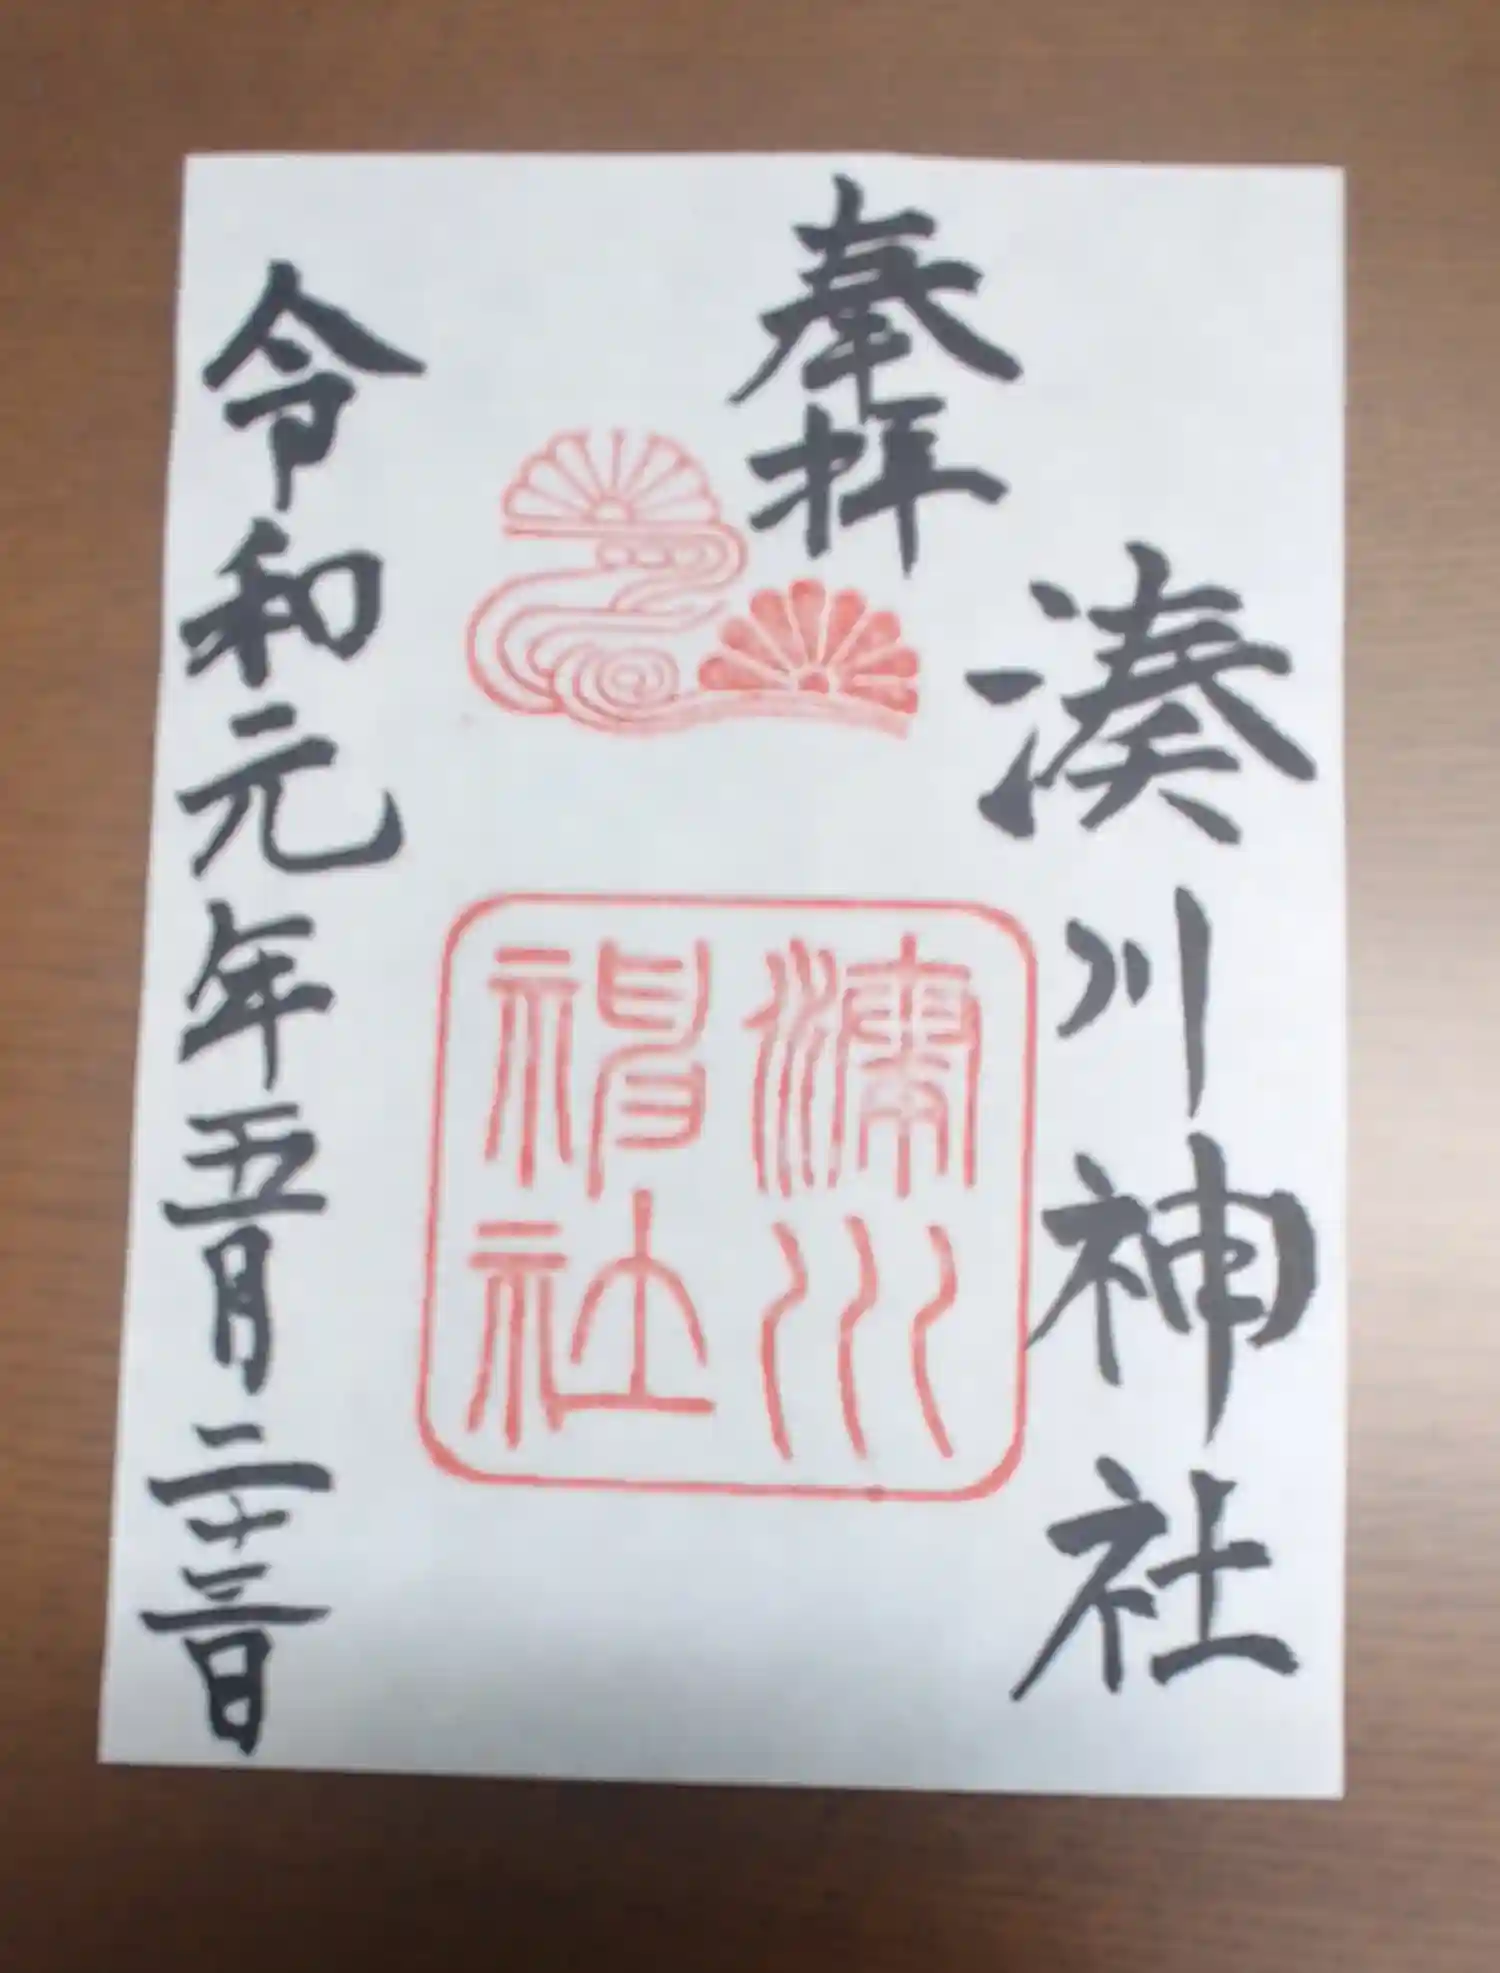 奉拝
湊川神社
湊川
神社
令和元年五月二十三日